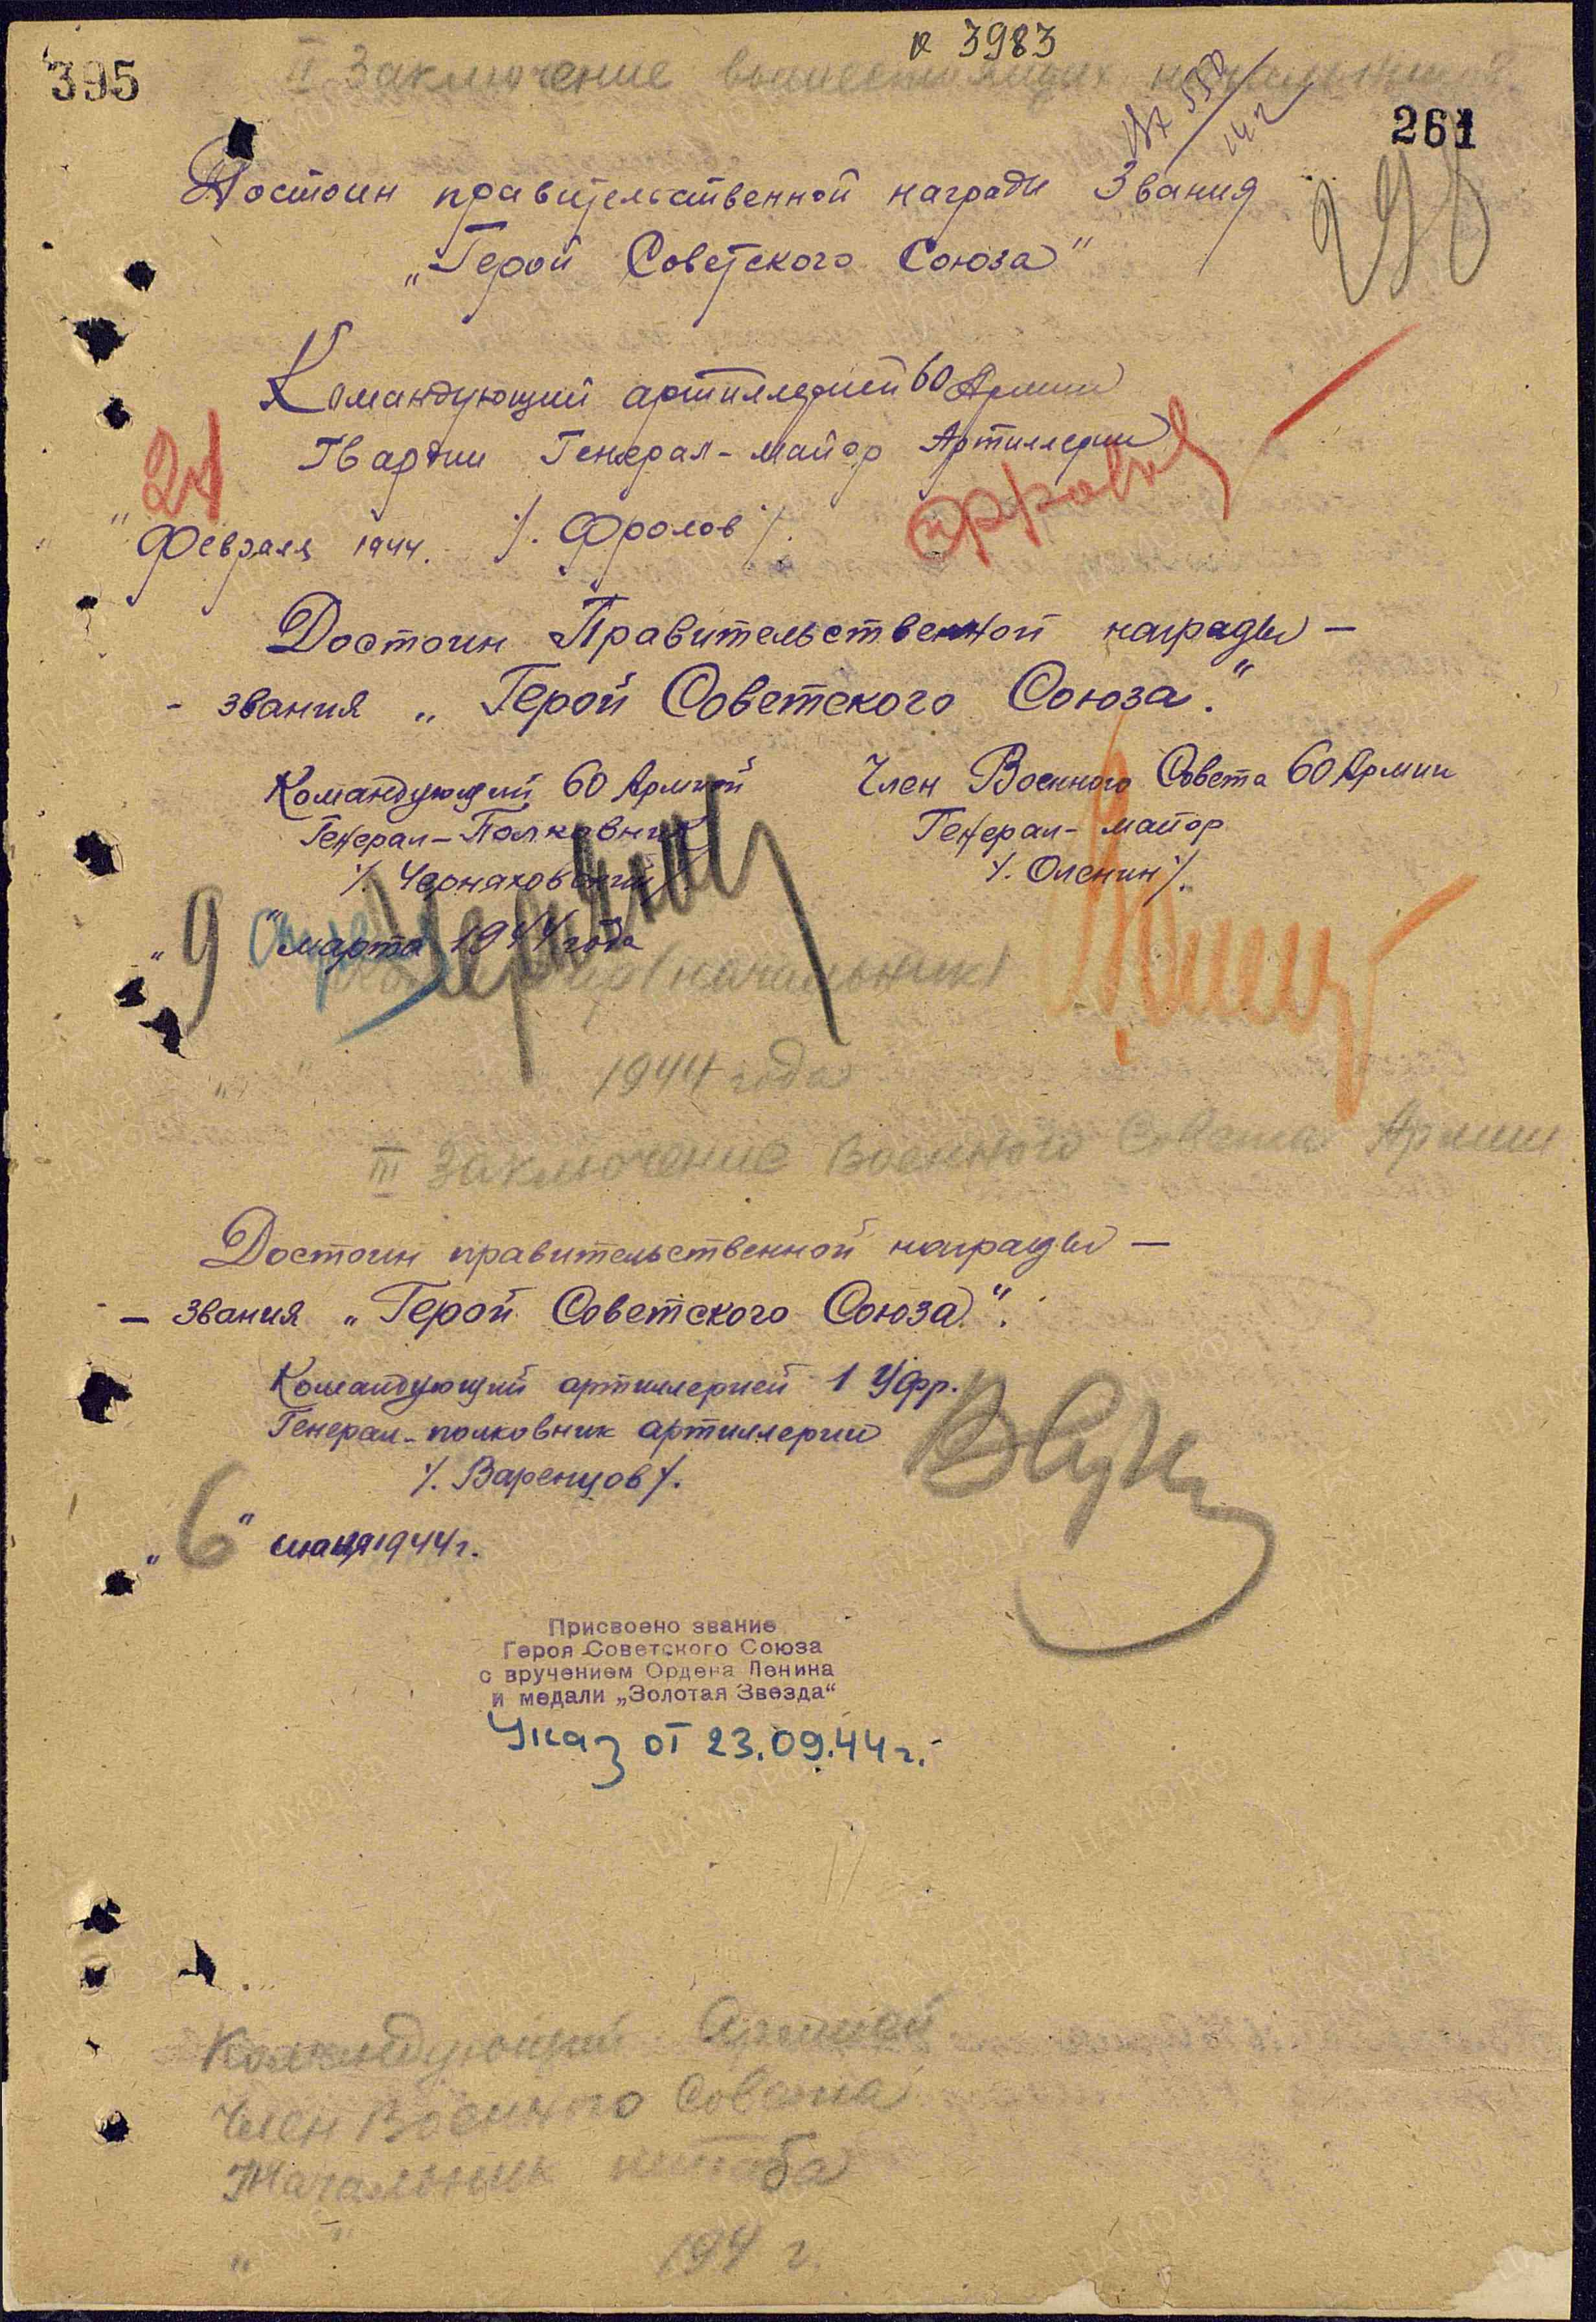 № 3983
395
II Заключение вышестоящих начальников
261
Вх 550
298
Достоин правительственной награды Звания
„Герой Советского Союза"
Командующий артиллерией 60 Армии
Гвардии Генерал-майор Артиллерии
/. Фролов /.
"21
Февраля 1944.
Достоин Правительственной награды —
- звания „Герой Советского Союза."
Командующий 60 Армией
Генерал-Полковник
/. Черняховский /.
„9" марта 1944 года
Член Военного Совета 60 Армии
Генерал-майор
/. Оленин /.
(начальник)
" " 1944 года
III Заключение Военного Совета Армии
Достоин правительственной награды —
— звания „Герой Советского Союза".
Командующий артиллерией 1 Уфр.
Генерал-полковник артиллерии
/. Варенцов /.
„6" 1944 г.
Присвоено звание
Героя Советского Союза
с вручением Ордена Ленина
и медали „Золотая Звезда"
Указ от 23.09.44 г.
Командующий Армией
Член Военного Совета
Начальник штаба
" " 194 г.